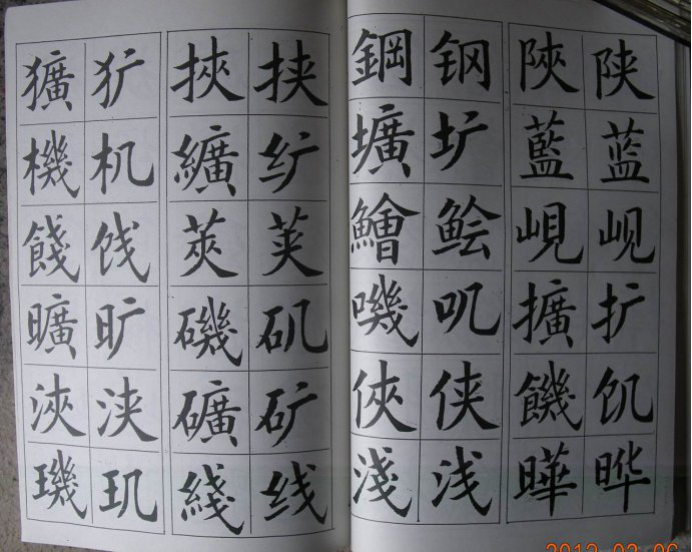 獷 犷 挾 挟 鋼 钢 陝 陕
機 机 纊 纩 壙 圹 藍 蓝
餞 饯 莢 荚 鱠 鲙 峴 岘
曠 旷 磯 矶 嘰 叽 擴 扩
浹 浃 礦 矿 俠 侠 饑 饥
璣 玑 綫 线 淺 浅 曄 晔